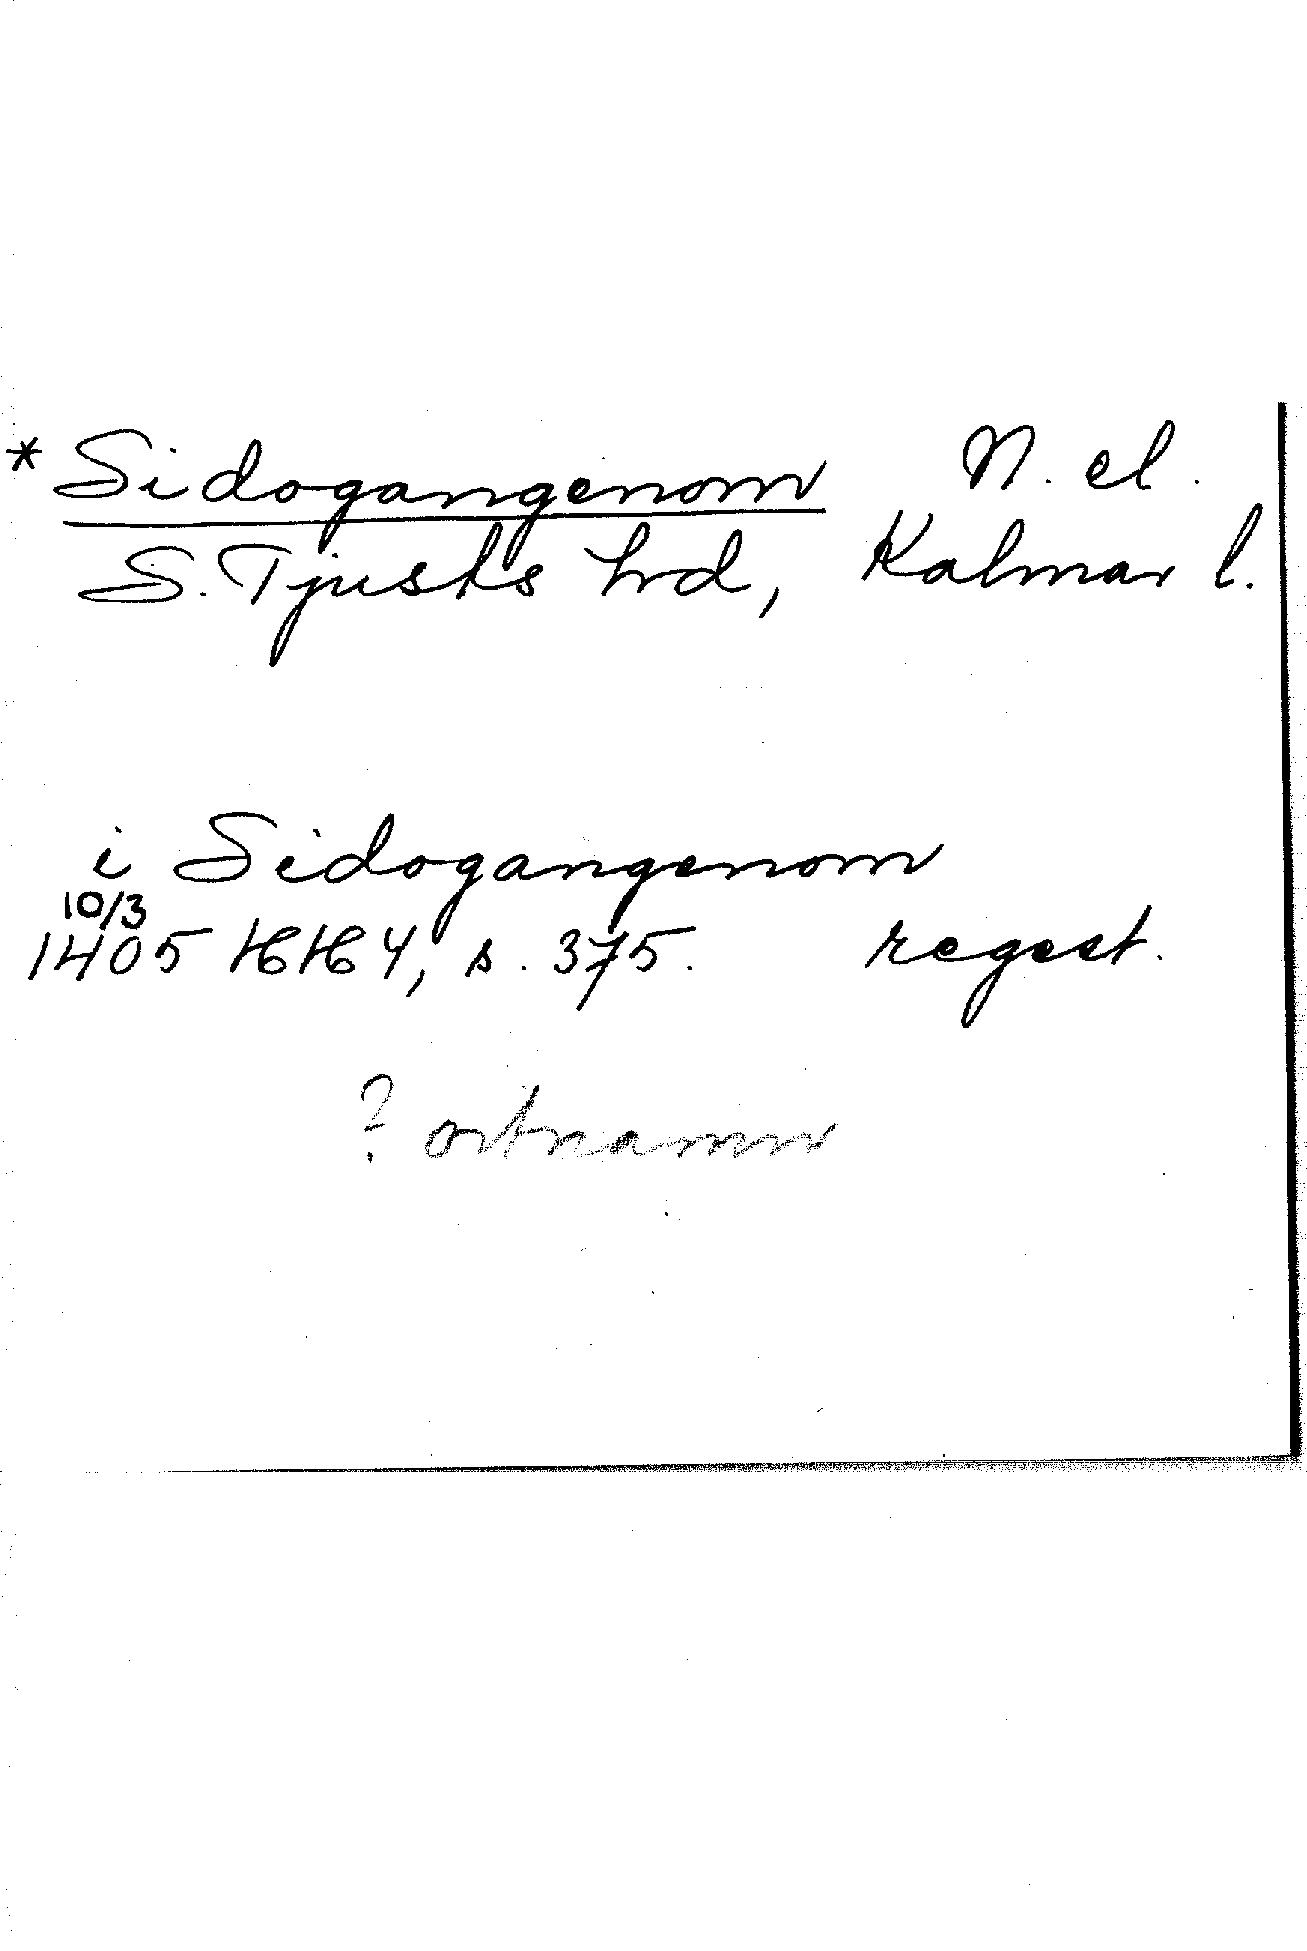 *Sidogangenom N. el.
S. Tjusts hrd, Kalmar l.
i Sidogangenom
10/3
1405 HH 4, s. 375. regest.
? ortnamn